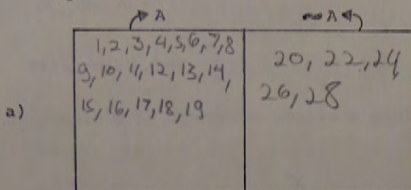 A
A
1,2,3,4,5,6,7,8
9,10,11,12,13,14,
15,16,17,18,19
20, 22, 24,
26, 28
a)